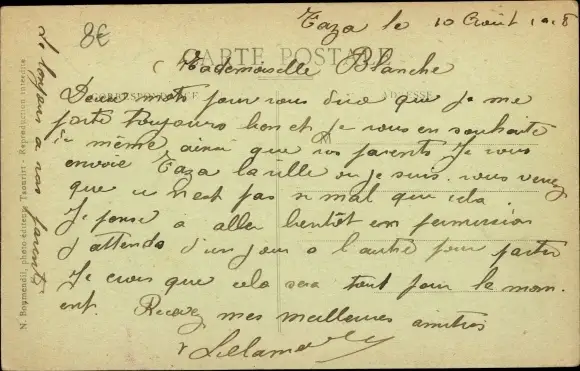 Taza le 10 Août 1918
8€
CARTE POSTALE
CORRESPONDANCE
ADRESSE
Mademoiselle Blanche
Deux mots pour vous dire que je me
porte toujours bon et je vous en souhaite
de même ainsi que vos parents Je vous
envoie Taza la ville ou je suis. vous verrez
que n'est pas si mal que cela.
Je pense a aller bientôt en permission
j'attends d'un jour a l'autre pour partir
Je crois que cela sera tout pour le mom
ent. Recevez mes meilleures amitiés
Le bonjour a vos parents
N. Boumendil, photo-éditeur, Taourirt - Reproduction interdite